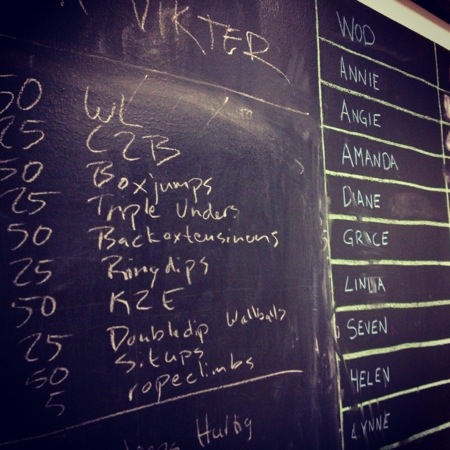 VIKTER
50 WL
25 C2B
50 Boxjumps
25 Triple Unders
50 Backextensinons
25 Ringdips
50 K2E
25 Doubledip Wallballs
50 Situps
5 ropeclimbs
Hurtig
WOD
ANNIE
ANGIE
AMANDA
DIANE
GRACE
LINDA
SEVEN
HELEN
LYNNE